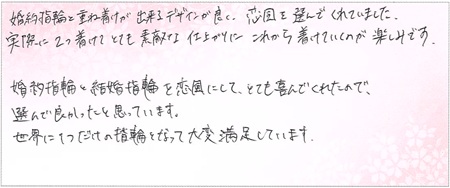 婚約指輪と重ね着けが出来るデザインが良く、恋風を選んでくれていました。
実際に2つ着けてとても素敵な仕上がりにこれから着けていくのが楽しみです。
婚約指輪と結婚指輪を恋風にして、とても喜んでくれたので、
選んで良かったと思っています。
世界に1つだけの指輪となって大変満足しています。